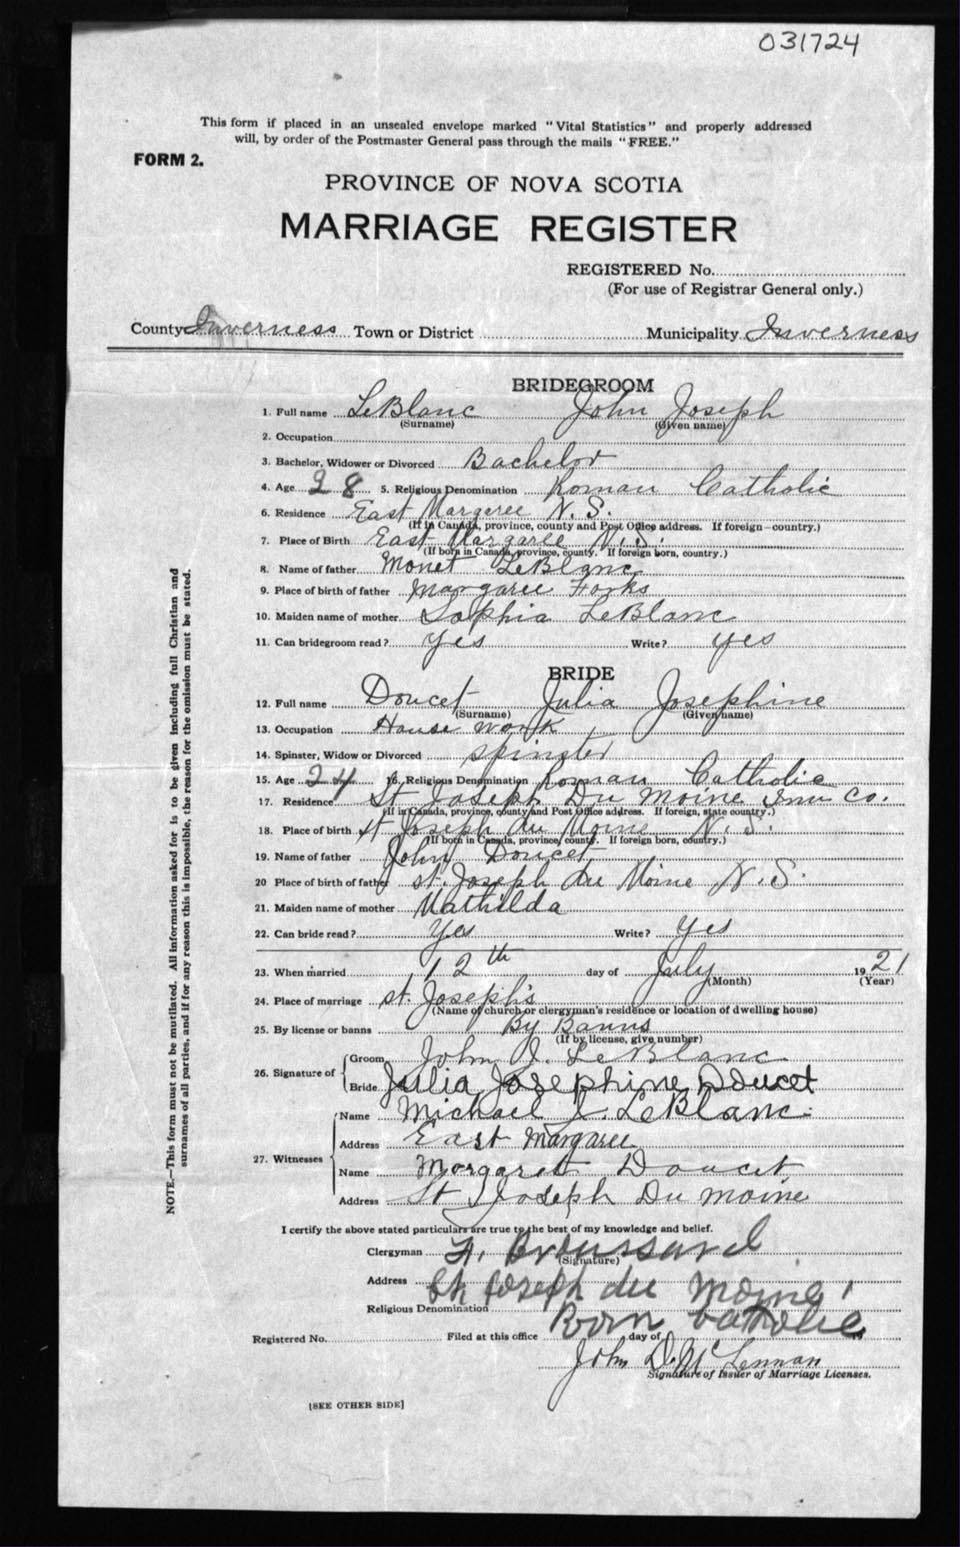 031724
This form if placed in an unsealed envelope marked "Vital Statistics" and properly addressed
will, by order of the Postmaster General pass through the mails "FREE."
FORM 2.
PROVINCE OF NOVA SCOTIA
MARRIAGE REGISTER
REGISTERED No.
(For use of Registrar General only.)
County Inverness Town or District Municipality Inverness
BRIDEGROOM
1. Full name LeBlanc John Joseph
(Surname) (Given name)
2. Occupation
3. Bachelor, Widower or Divorced Bachelor
4. Age 28 5. Religious Denomination Roman Catholic
6. Residence East Margaree N.S.
(If in Canada, province, county and Post Office address. If foreign—country.)
7. Place of Birth East Margaree N.S.
(If born in Canada, province, county. If foreign born, country.)
8. Name of father Monet LeBlanc
9. Place of birth of father Margaree Forks
10. Maiden name of mother Sophia LeBlanc
11. Can bridegroom read? yes Write? yes
BRIDE
12. Full name Doucet Julia Josephine
(Surname) (Given name)
13. Occupation House work
14. Spinster, Widow or Divorced spinster
15. Age 24 16. Religious Denomination Roman Catholic
17. Residence St Joseph Du Moine Inv Co.
(If in Canada, province, county and Post Office address. If foreign, state country.)
18. Place of birth St Joseph du Moine N.S.
(If born in Canada, province, county. If foreign born, country.)
19. Name of father John Doucet
20 Place of birth of father St. Joseph du Moine N.S.
21. Maiden name of mother Mathilda
22. Can bride read? Yes Write? Yes
23. When married 12th day of July 1921
(Month) (Year)
24. Place of marriage St. Joseph's
(Name of church or clergyman's residence or location of dwelling house)
25. By license or banns By Banns
(If by license, give number)
26. Signature of Groom John J. LeBlanc
Bride Julia Josephine Doucet
27. Witnesses Name Michael J. LeBlanc
Address East Margaree
Name Margaret Doucet
Address St Joseph Du Moine
I certify the above stated particulars are true to the best of my knowledge and belief.
Clergyman A. Broussard
(Signature)
Address St Joseph du Moine
Religious Denomination Rom Catholic
Registered No. Filed at this office day of 19
John D. McLennan
Signature of Issuer of Marriage Licenses.
[SEE OTHER SIDE]
NOTE.—This form must not be mutilated. All information asked for is to be given including full Christian and
surnames of all parties, and if for any reason this is impossible, the reason for the omission must be stated.